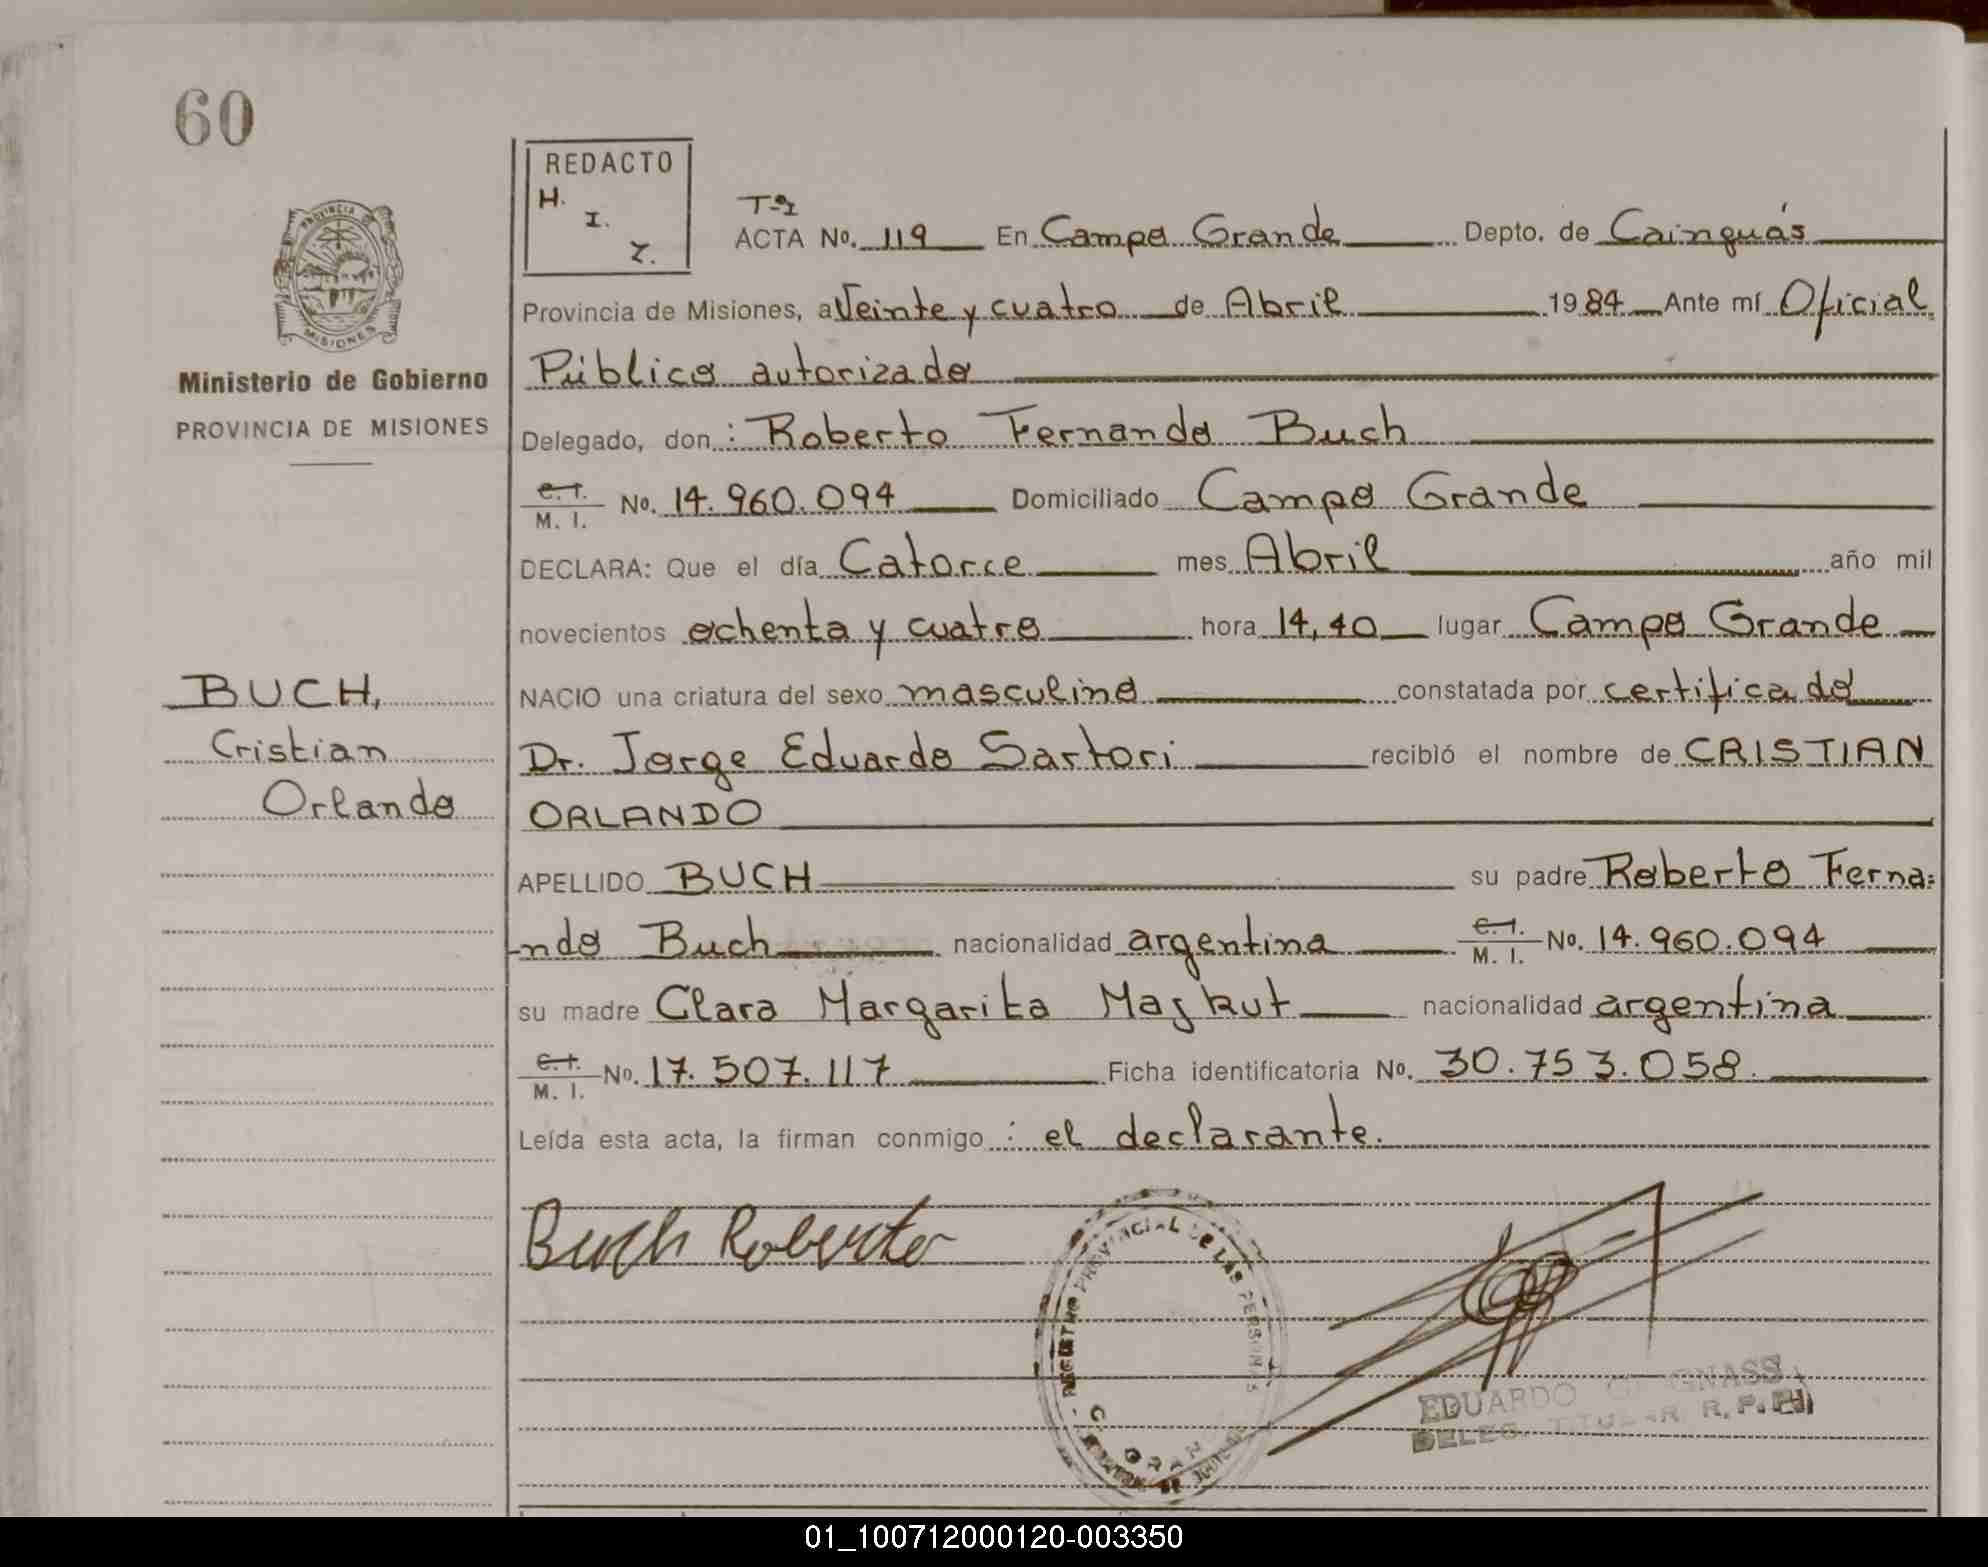 60
PROVINCIA DE
MISIONES
Ministerio de Gobierno
PROVINCIA DE MISIONES
BUCH,
Cristian
Orlando
REDACTO
H.
I.
Z.
Tº I
ACTA No. 119 En Campo Grande Depto. de Cainguás
Provincia de Misiones, a Veinte y cuatro de Abril 1984 Ante mí Oficial
Público autorizado
Delegado, don : Roberto Fernando Buch
C. I. / M. I. No. 14.960.094 Domiciliado Campo Grande
DECLARA: Que el día Catorce mes Abril año mil
novecientos ochenta y cuatro hora 14,40 lugar Campo Grande
NACIO una criatura del sexo masculino constatada por certificado
Dr. Jorge Eduardo Sartori recibió el nombre de CRISTIAN
ORLANDO
APELLIDO BUCH su padre Roberto Ferna=
-ndo Buch nacionalidad argentina C. I. / M. I. No. 14.960.094
su madre Clara Margarita Maskut nacionalidad argentina
C. I. / M. I. No. 17.507.117 Ficha identificatoria No. 30.753.058.
Leída esta acta, la firman conmigo : el declarante.
Buch Roberto
REGISTRO PROVINCIAL DE LAS PERSONAS
EDUARDO
DELEG. TITULAR R. P. P.
01_100712000120-003350